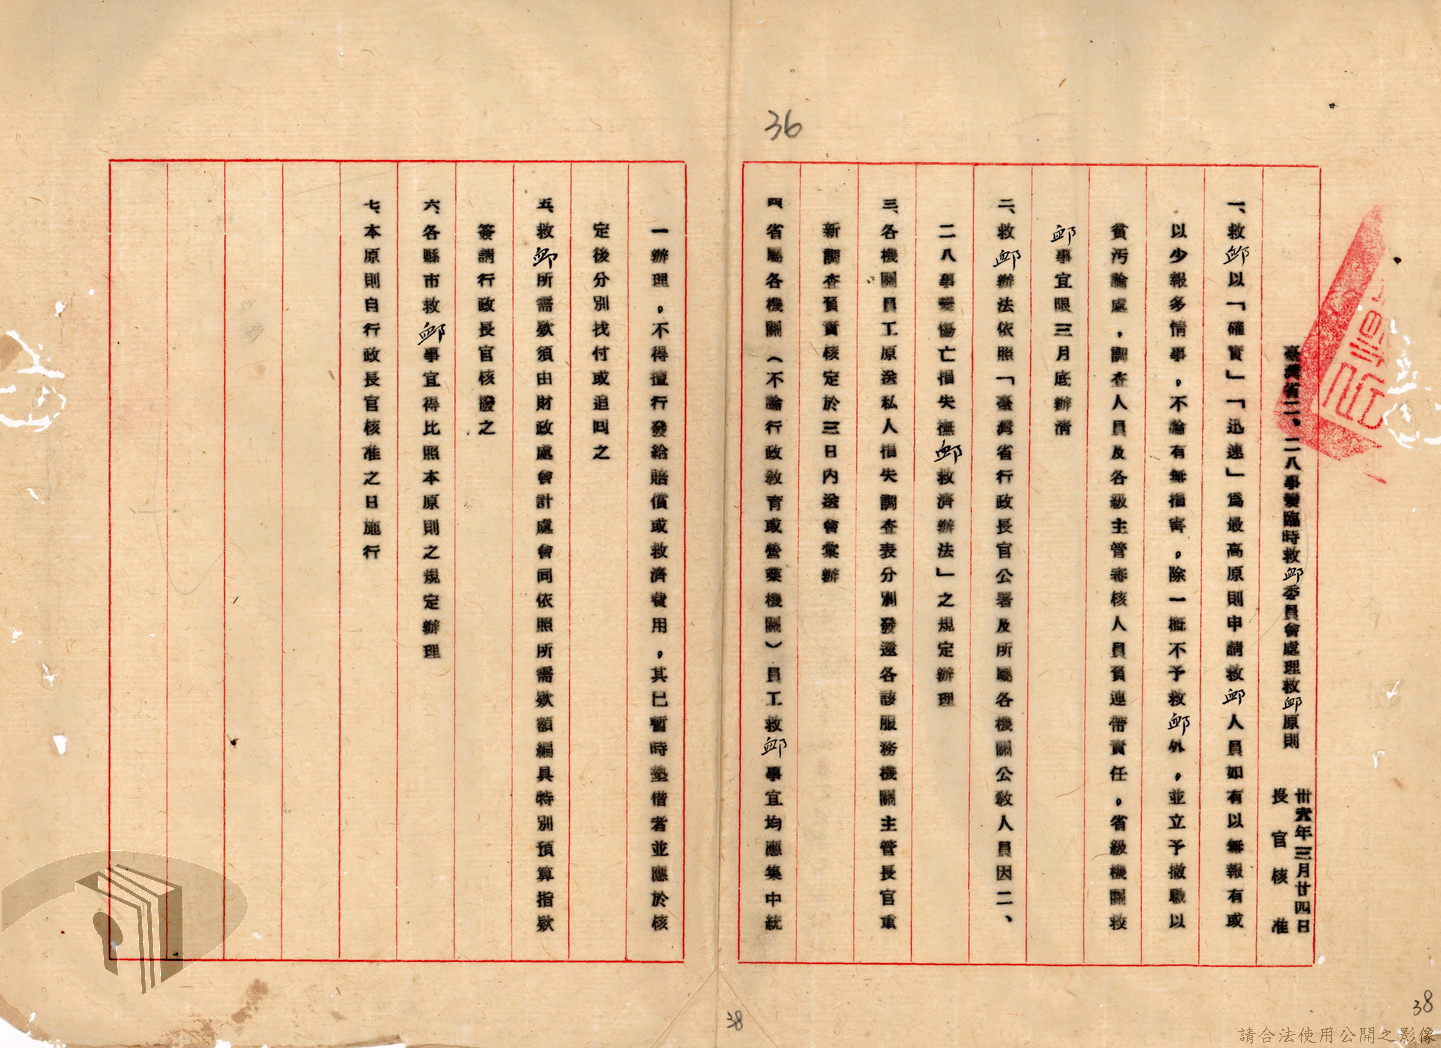 36
臺灣省二、二八事變臨時救卹委員會處理救卹原則
卅六年三月廿四日
長官核准
一、救卹以「確實」「迅速」為最高原則申請救卹人員如有以無報有或
以少報多情事，不論有無指害，除一概不予救卹外，並立予撤職以
貪污論處，調查人員及各級主管審核人員負連帶責任。省級機關救
卹事宜限三月底辦清
二、救卹辦法依照「臺灣省行政長官公署及所屬各機關公教人員因二、
二八事變傷亡損失撫卹救濟辦法」之規定辦理
三、各機關員工原送私人損失調查表分別發還各該服務機關主管長官重
新調查負責核定於三日內送會彙辦
四、省屬各機關（不論行政教育或營業機關）員工救卹事宜均應集中統
一辦理。不得擅行發給賠償或救濟費用。其已暫時墊借者並應於核
定後分別找付或追回之
五、救卹所需欵須由財政處會計處會同依照所需欵額編具特別預算指欵
簽請行政長官核發之
六、各縣市救卹事宜得比照本原則之規定辦理
七、本原則自行政長官核准之日施行
38
38
請合法使用公開之影像